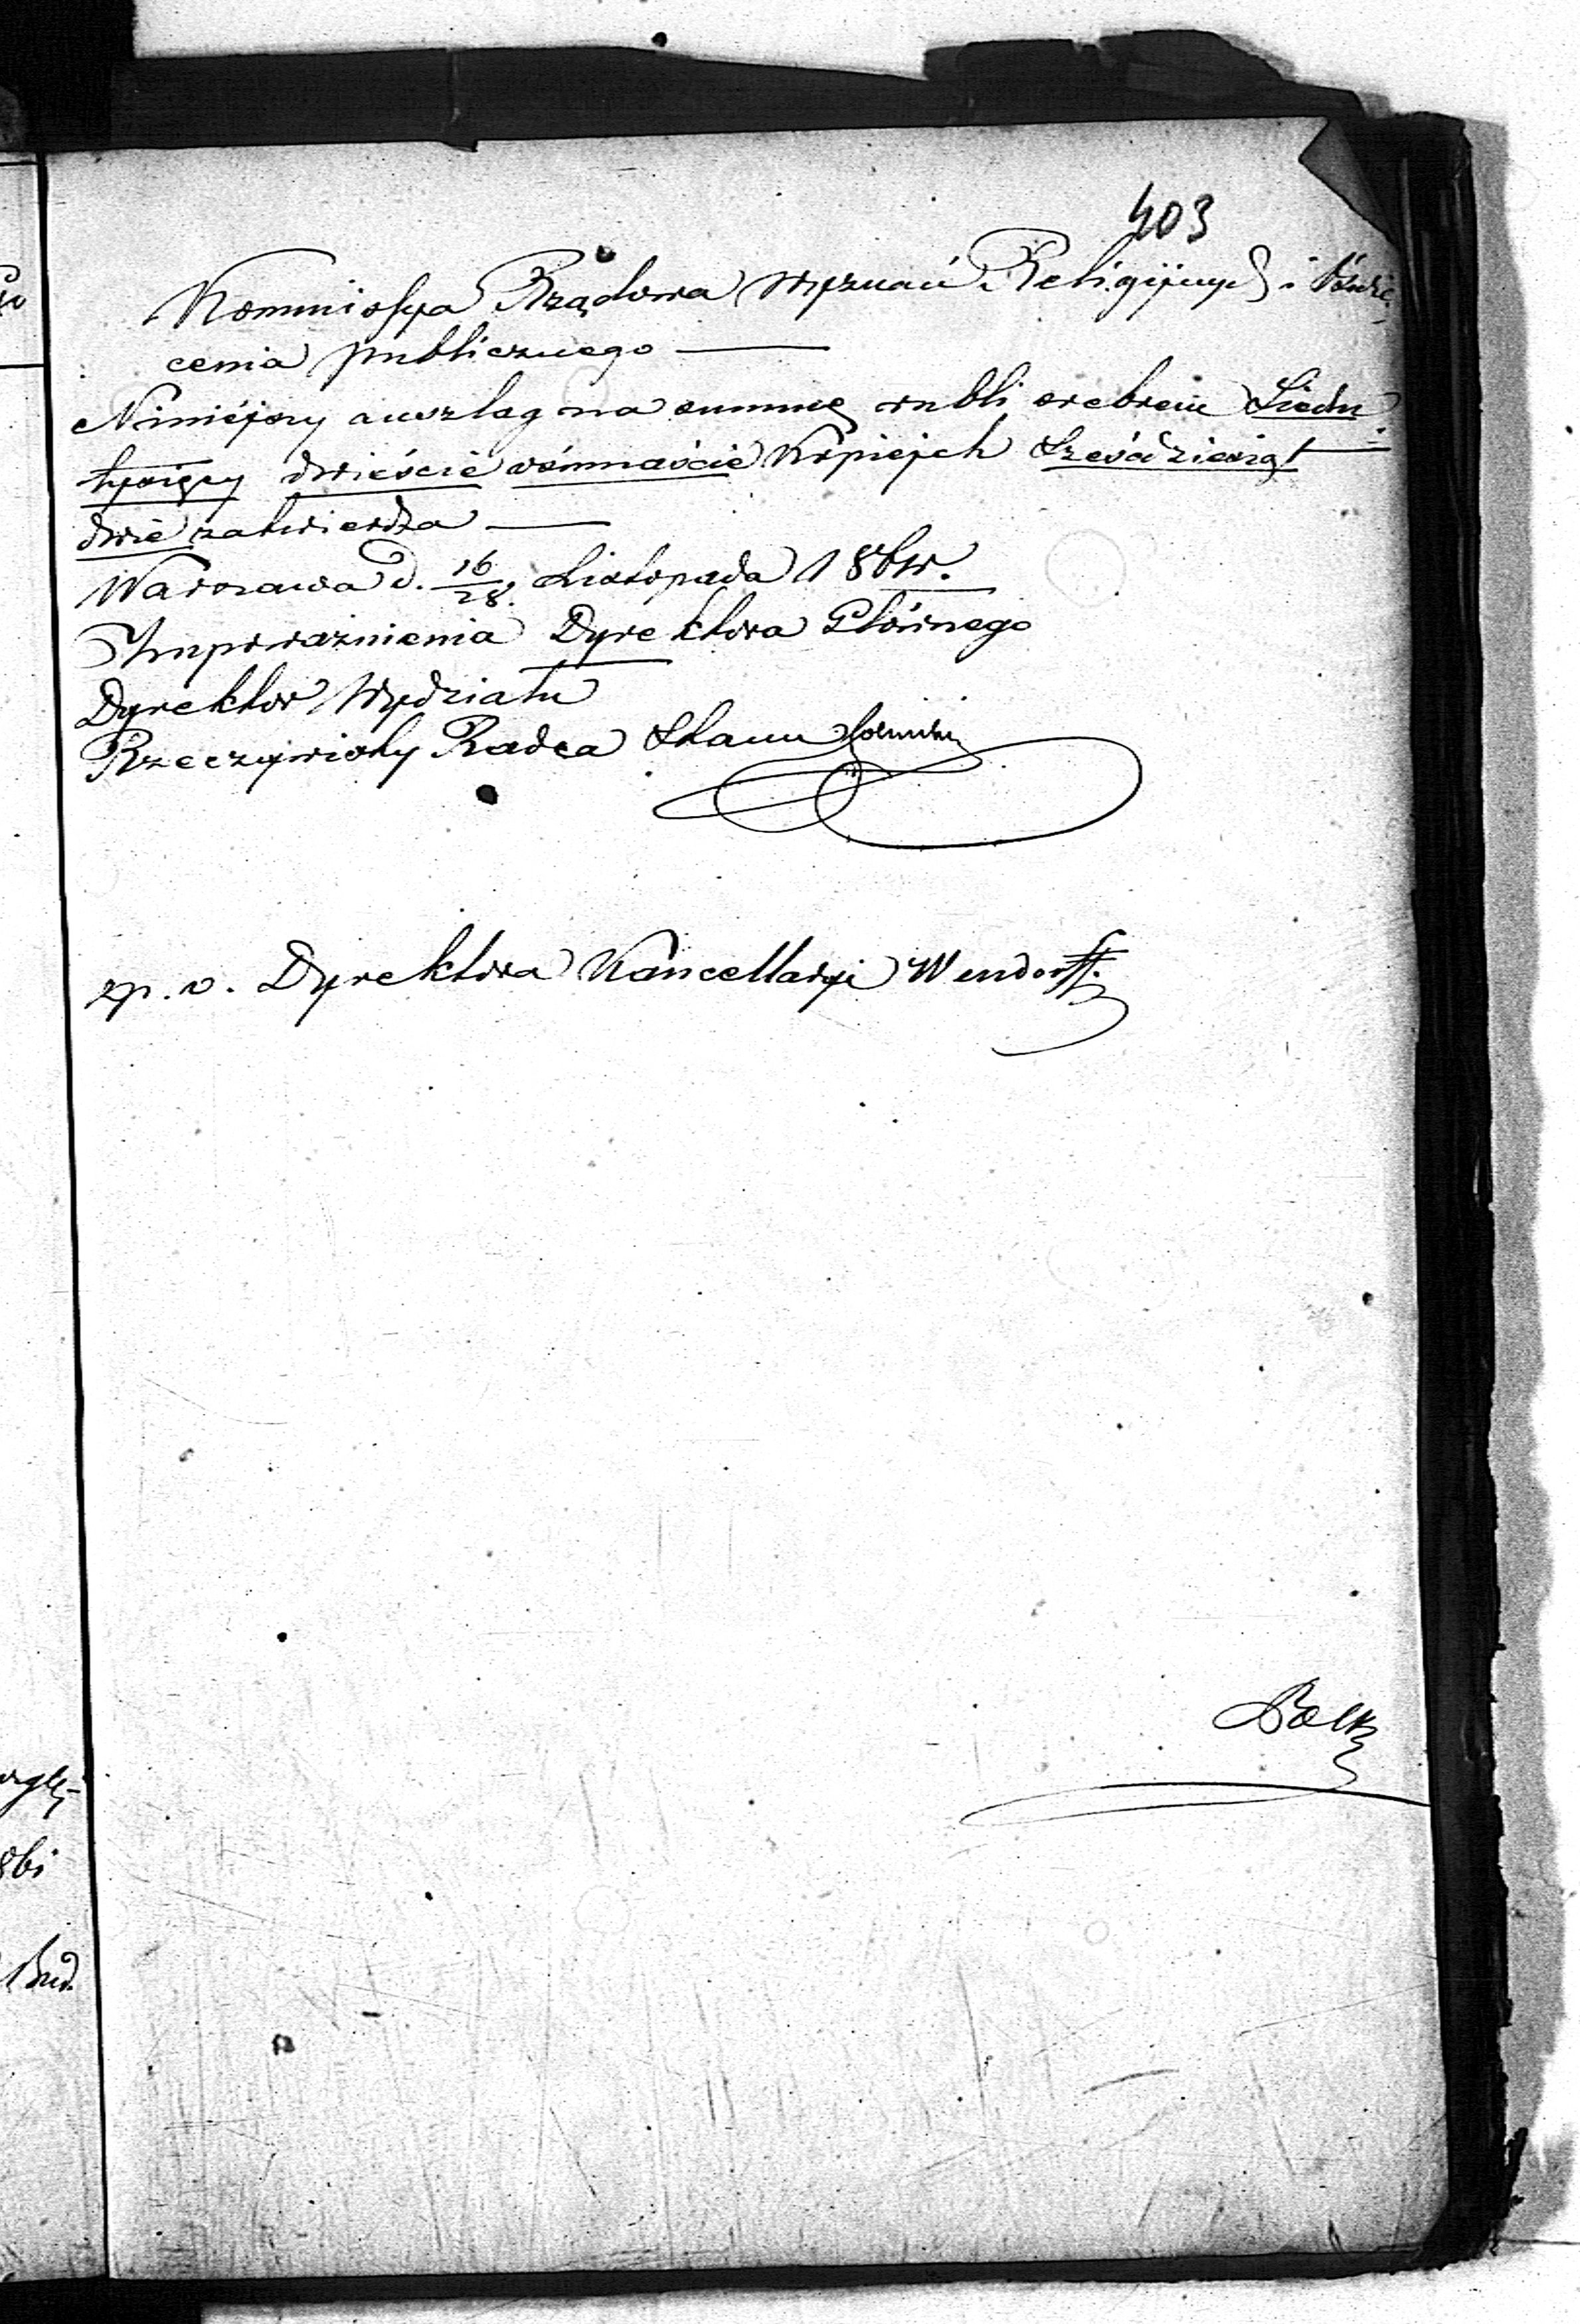 403
Kommissya Rządowa Wyznań Religijnych i Oświe-
cenia publicznego
Niniejszy anszlag na summę rubli srebrem Siedm
tysięcy dwieście ośmnaście Kopiejek Sześćdziesiąt
dwie zatwierdza
Warszawa d. 16/28 Listopada 186 r.
Z upoważnienia Dyrektora Głównego
Dyrektor Wydziału
Rzeczywisty Radca Stanu
zp. o. Dyrektora Kancellaryi Wendorff.